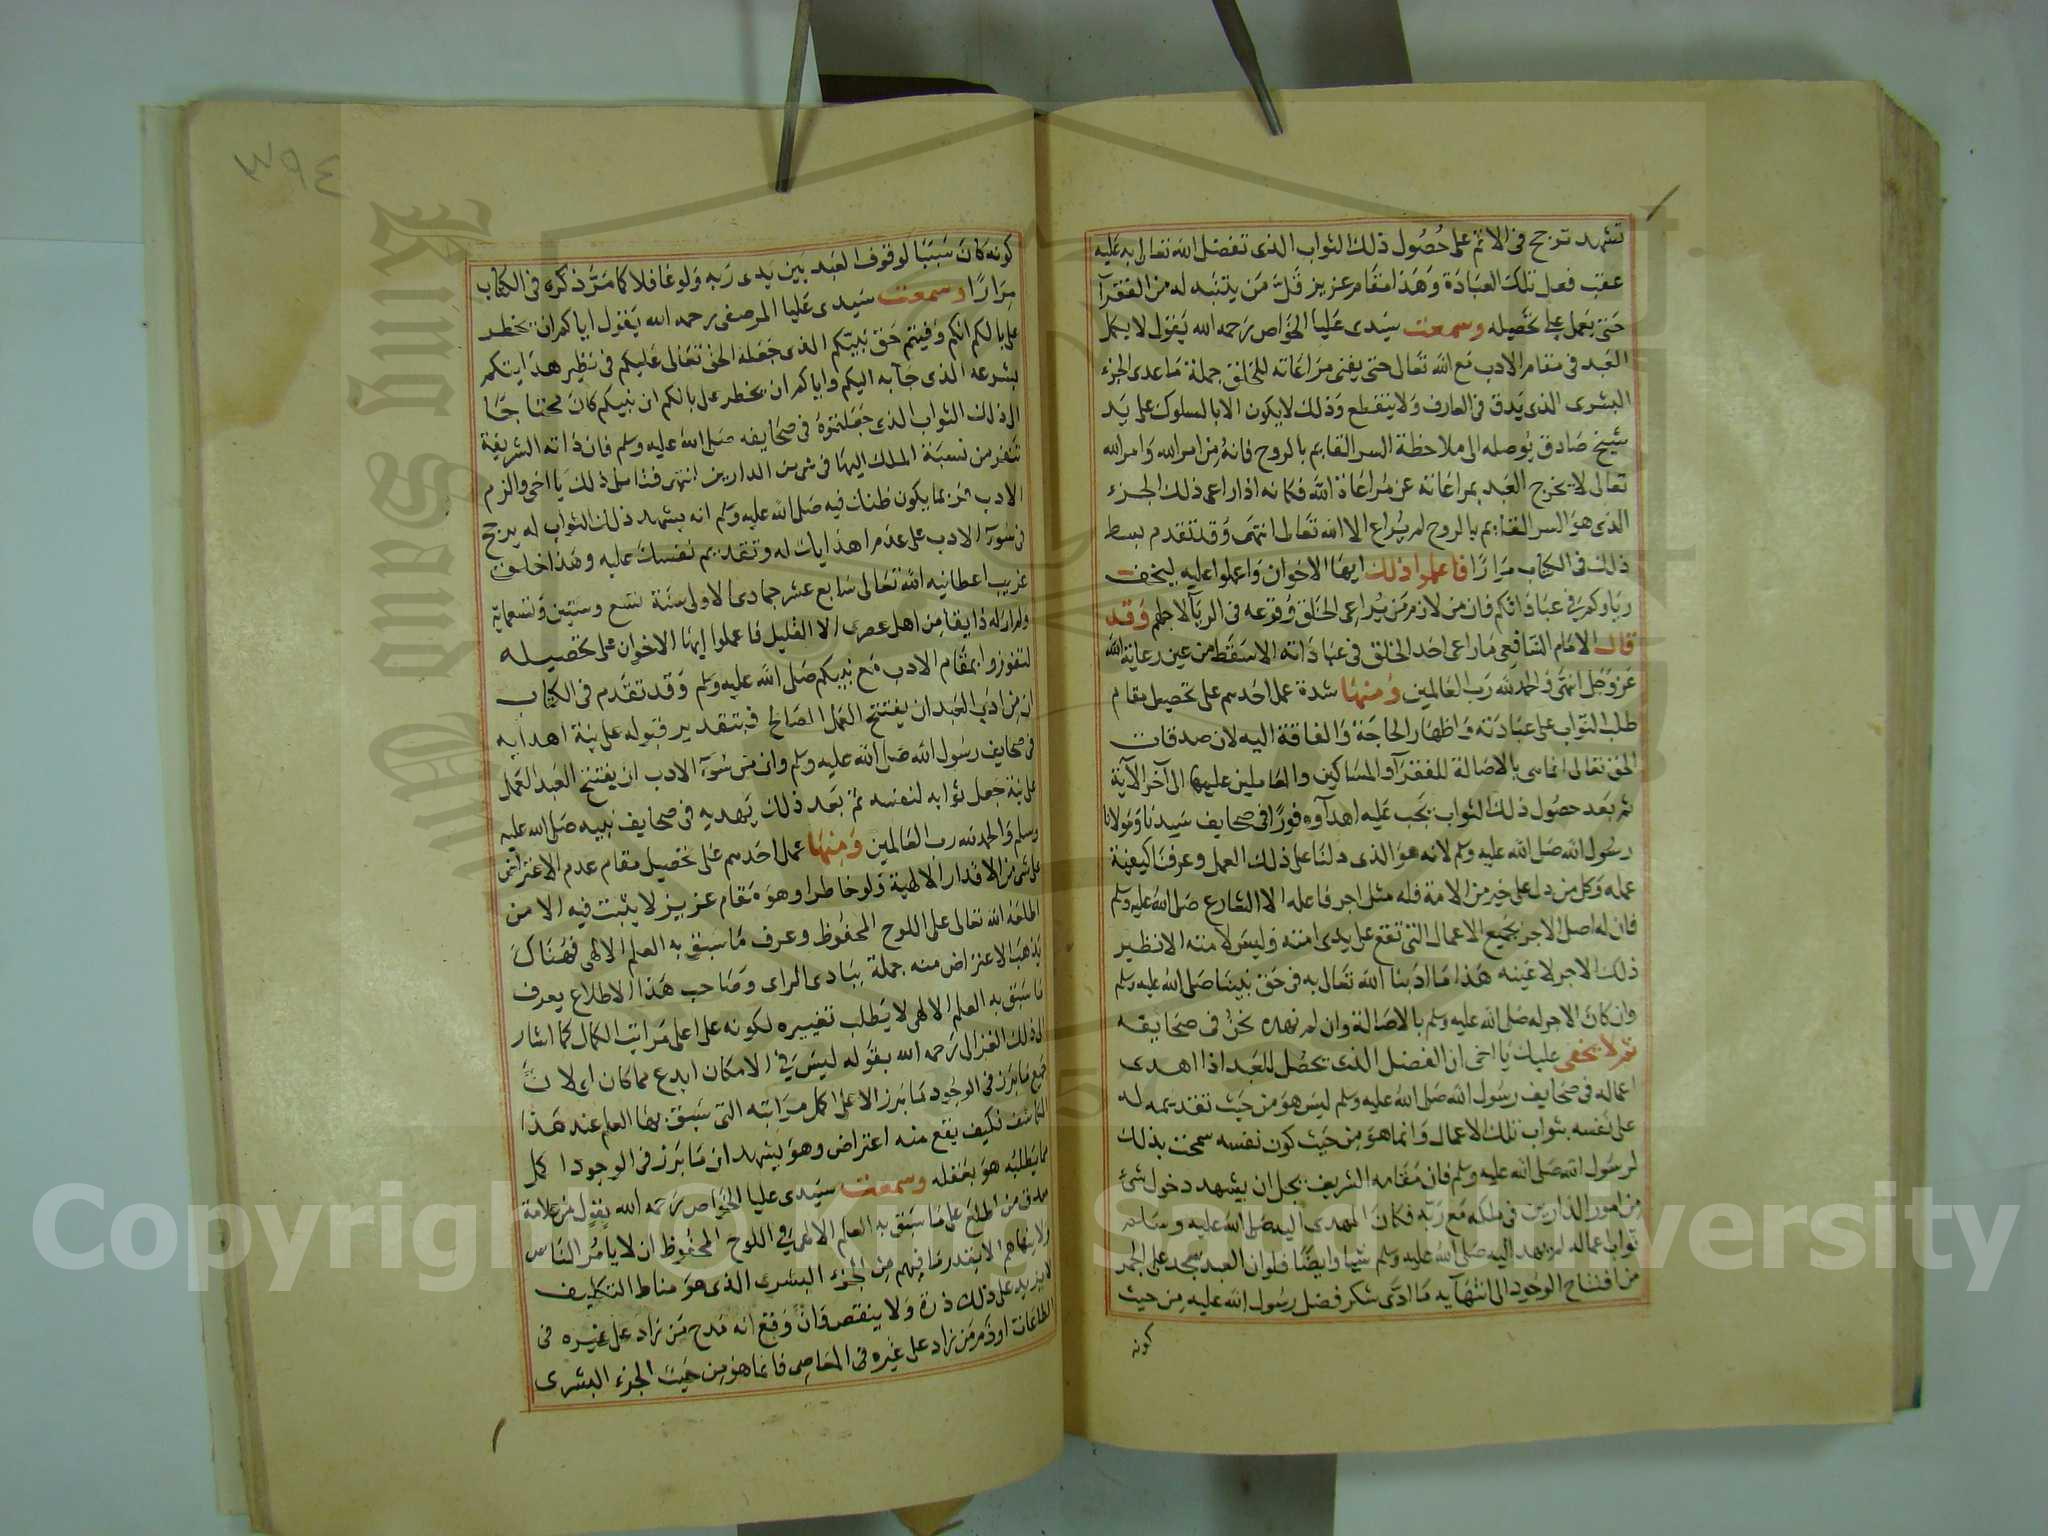 تشهد ترجح في الاثم على حُصُول ذلك الثواب الذى تفضل الله تعالى به عليه
عقب فعل تلك العبادة وهذا مقام عزيز قلّ من يتنبه له من الفقرآ
حتى يعمل على تحصيله وسمعت سيدى عليا الخواص رحمه الله يقول لا يكمل
العبد في مقام الادب مع الله تعالى حتى يفنى مراعاته للخلق جملة ماعدى الجزء
البشرى الذى يدق في العارف ولا ينقطع وذلك لا يكون الا بالسلوك على يد
شيخ صادق يوصله الى ملاحظة السر القايم بالروح فانه من امر الله وامر الله
تعالى لا يخرج العبد بمراعاته عن مراعاة الله فكانه اذا راعى ذلك الجزء
الذى هو السر القايم بالروح لم يراع الا الله تعالى انتهى وقد تقدم بسط
ذلك في الكتاب مرارًا فاعملوا ذلك ايها الاخوان واعملوا عليه ليخف
رياوكم في عباداتكم فان من لازم من يراعى الخلق وقوعه في الريآ لاجلهم وقد
قال الامام الشافعى ماراعى احد الخلق في عباداته الا سقط من عين رعاية الله
عز وجل انتهى والحمد لله رب العالمين ومنها شدة عمل احدهم على تحصيل مقام
طلب الثواب على عبادته واظهار الحاجة والفاقة اليه لان صدقات
الحق تعالى انما هى بالاصالة للفقرآ والمساكين والعاملين عليها الى آخر الآية
ثم بعد حصول ذلك الثواب يجب عليه اهدآوه فورًا في صحايف سيدنا ومولانا
رسول الله صلى الله عليه وسلم لانه هو الذى دلنا على ذلك العمل وعرفنا كيفية
عمله وكل من دل على خير من الامة فله مثل اجر فاعله الا الشارع صلى الله عليه وسلم
فان له اصل الاجر بجميع الاعمال التى تقع على يدى امته وليس لامته الا نظير
ذلك الاجر لا عينه هذا ما ادبنا الله تعالى به في حق نبينا صلى الله عليه وسلم
وان كان الاجر له صلى الله عليه وسلم بالاصالة وان لم نهده نحن في صحايفه
ثم لا يخفى عليك يا اخى ان الفضل الذى يحصل للعبد اذا اهدى
اعماله في صحايف رسول الله صلى الله عليه وسلم ليس هو من حيث تقديمه له
على نفسه بثواب تلك الاعمال وانما هو من حيث كون نفسه سمحت بذلك
لرسول الله صلى الله عليه وسلم فان مقامه الشريف يجل ان يشهد دخول شئ
من امور الدارين في ملكه مع ربه فكان المهدى اليه صلى الله عليه وسلم
ثواب اعماله لم يهد اليه صلى الله عليه وسلم شيا وايضًا فلو ان العبد سجد على الجمر
من افتتاح الوجود الى انتهآيه ما ادى شكر فضل رسول الله عليه من حيث
كونه
٣٩٤
كونه كان سببًا لوقوف العبد بين يدى ربه ولو غافلا كما مرّ ذكره في الكتاب
مرارًا وسمعت سيدى عليا المرصفى رحمه الله يقول اياكم ان يخطر
على بالكم انكم وفيتم حق نبيكم الذى جعله الحق تعالى عليكم في نظير هدايتكم
بشرعه الذى جآ به اليكم واياكم ان يخطر على بالكم ان نبيكم كان محتاجًا
الى ذلك الثواب الذى جعلتموه في صحايفه صلى الله عليه وسلم فان ذاته الشريفة
تنفر من نسبة الملك اليها في شئ من الدارين انتهى فتامل ذلك يا اخى والزم
الادب فربما يكون ظنك فيه صلى الله عليه وسلم انه يشهد ذلك الثواب له يرجح
في سوء الادب على عدم اهدايك له وتقديم نفسك عليه وهذا خلق
غريب اعطانيه الله تعالى سابع عشر جمادى الاولى سنة تسع وستين وتسعماية
ولم ار له ذايقا من اهل عصرى الا القليل فاعملوا ايها الاخوان على تحصيله
لتفوزوا بمقام الادب مع نبيكم صلى الله عليه وسلم وقد تقدم في الكتاب
ان من ادب العبد ان يفتتح العمل الصالح بتقدير قبوله على نية اهدايه
في صحايف رسول الله صلى الله عليه وسلم وان من سوء الادب ان يفتتح العبد العمل
على نية جعل ثوابه لنفسه ثم بعد ذلك يهديه في صحايف نبيه صلى الله عليه
وسلم والحمد لله رب العالمين ومنها عمل احدهم على تحصيل مقام عدم الاعتراض
على شئ من الاقدار الالهية ولو خاطرا وهو مقام عزيز لا يثبت فيه الا من
اطلعه الله تعالى على اللوح المحفوظ وعرف ما سبق به العلم الالهى فهناك
يذهب الاعتراض منه جملة ببادى الراى وصاحب هذا الاطلاع يعرف
ما سبق به العلم الالهى لا يطلب تغييره لكونه على اعلى مراتب الكمال كما اشار
الى ذلك الغزالى رحمه الله بقوله ليس في الامكان ابدع مما كان اى لان
جميع ما برز في الوجود ما برز الا على اكمل مراتبه التى سبق بها العلم عند هذا
الكاشف فكيف يقع منه اعتراض وهو يشهد ان ما برز في الوجود اكمل
مما يطلبه هو بعقله وسمعت سيدى عليا الخواص رحمه الله يقول من علامة
صدق من اطلع على ما سبق به العلم الالهى في اللوح المحفوظ ان لا يأمر الناس
ولا ينهاهم الا بقدر ما فيهم من الجزء البشرى الذى هو مناط التكليف
لا يزيد على ذلك ذرة ولا ينقص وان وقع انه مدح من زاد على غيره في
الطاعات او ذم من زاد على غيره في المعاصى فانما هو من حيث الجزء البشرى
King Saud University
Copyright © King Saud University